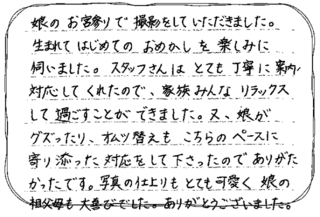 娘のお宮参りで撮影をしていただきました。
生まれてはじめてのおめかしを楽しみに
伺いました。スタッフさんはとても丁寧に案内
対応してくれたので、家族みんなリラックス
して過ごすことができました。又、娘が
グズったり、オムツ替えもこちらのペースに
寄り添った対応をして下さったのでありがた
かったです。写真の仕上りもとても可愛く娘の
祖父母も大喜びでした。ありがとうございました。